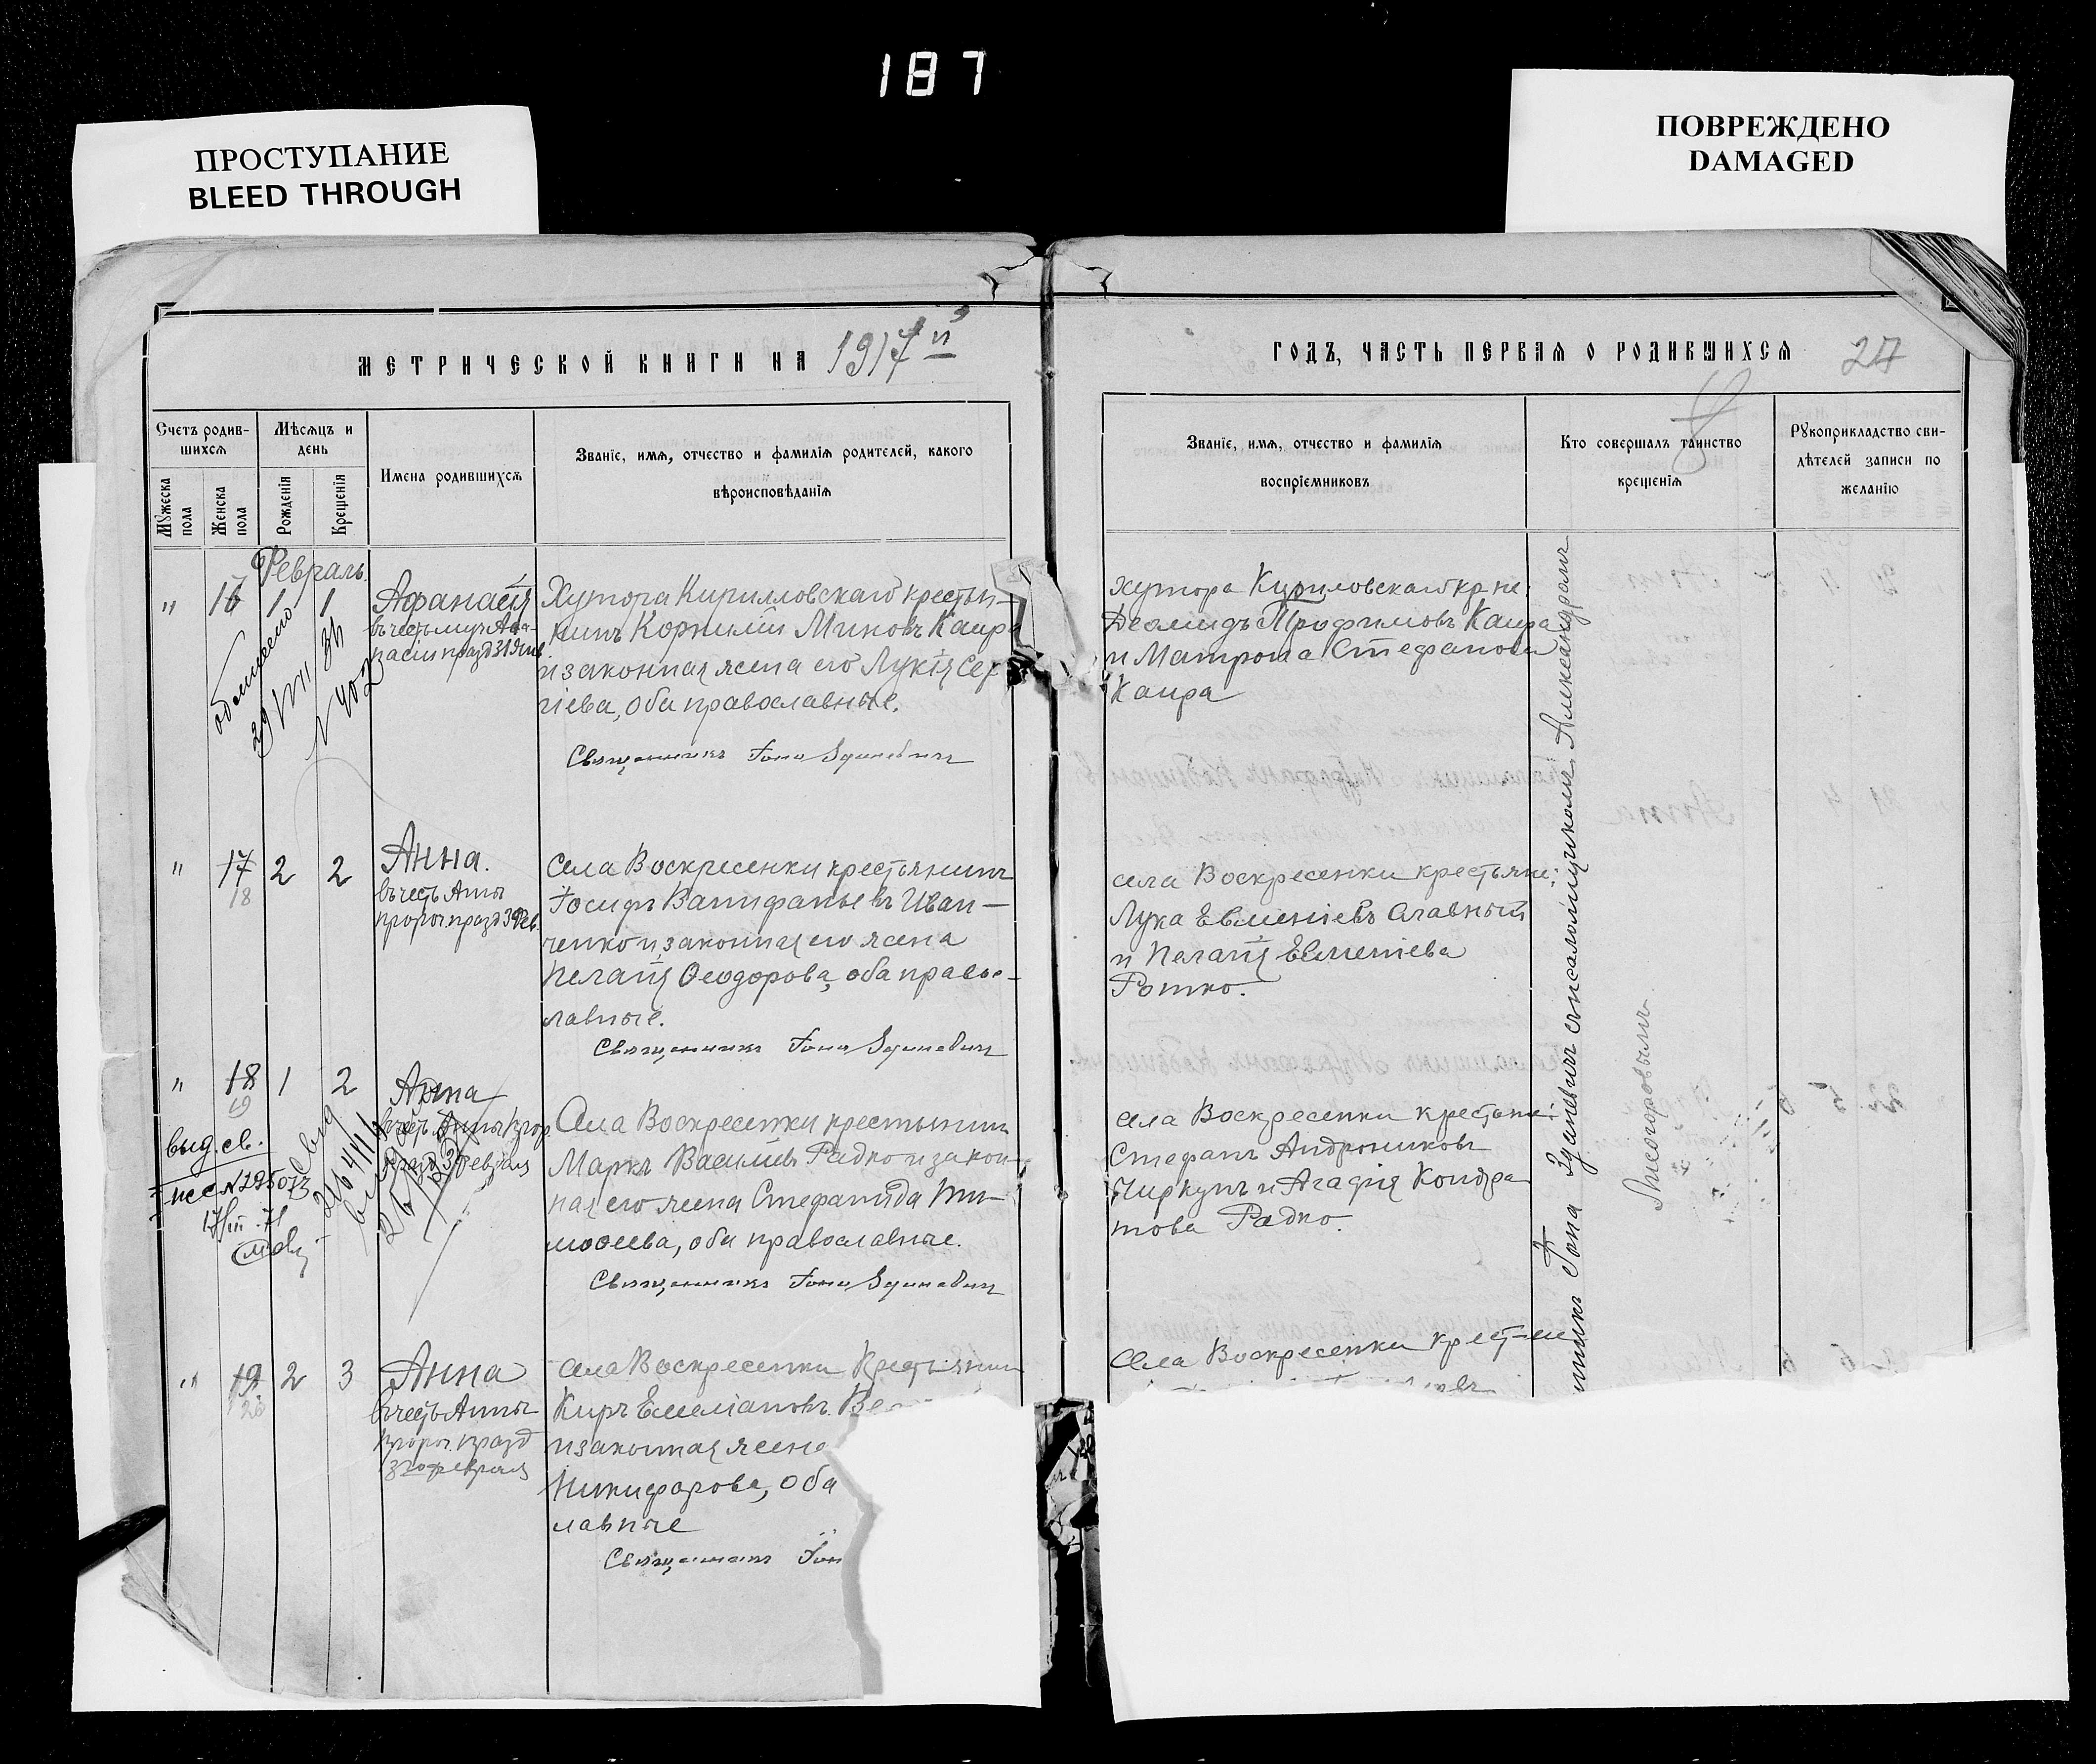 187
ПРОСТУПАНИЕ
BLEED THROUGH
ПОВРЕЖДЕНО
DAMAGED
МЕТРИЧЕСКОЙ КНИГИ НА 1917й
ГОДЪ, ЧАСТЬ ПЕРВАЯ О РОДИВШИХСЯ
27
Счетъ родив-
шихся
Мужеска пола
Женска пола
Мѣсяцъ и
день
Рожденія
Крещенія
Имена родившихся
Званіе, имя, отчество и фамилія родителей, какого
вѣроисповѣданія
Званіе, имя, отчество и фамилія
воспріемниковъ
Кто совершалъ таинство
крещенія
Рукоприкладство сви-
дѣтелей записи по
желанію
Февраль
" 16 1 1
Афанасія
въ честь муч. Афа-
Хутора Кирилловскаго крестья-
нинъ Корнилій Миновъ Каира
и законная жена его Лукія Сер-
гіева, оба православные.
Священникъ Іона Зданевичъ
хутора Кириловскаго кр-не:
Деомидъ Трофимовъ Каира
и Матрона Стефанова
Каира
обмінено
29/VIII 36
N 402
" 17 2 2
18
Анна.
въ честь Анны
прор. празд 3 Фев.
Села Воскресенки крестьянинъ
Іосифъ Ванифатьевъ Иван-
ченко и законная его жена
Пелагія Ѳеодорова, оба право-
лавные.
Священникъ Іона Зданевичъ
села Воскресенки крестьяне:
Лука Евменіевъ Славный
и Пелагія Евменіева
Ротко.
" 18 1 2
19
Анна
въ честь Анны прор.
празд 3 Февраля
выд. св.
Села Воскресенки крестьянинъ
Маркъ Василіевъ Радко и закон-
ная его жена Стефанида Ти-
моѳеева, оба православные.
Священникъ Іона Зданевичъ
села Воскресенки крестьяне:
Стефанъ Андрониковъ
Чиркунъ и Агафія Кондра-
това Радко.
" 19 2 3
20
Анна
въ честь Анны
прор. празд
3го февраля
Села Воскресенки Крестьянин
Киръ Емеліановъ Ве
и законная жена
Никифорова, оба
лавные
Священникъ Іон
Села Воскресенки крест-не
Іона Зданевичъ съ псаломщикомъ Александромъ
Лисогоровымъ